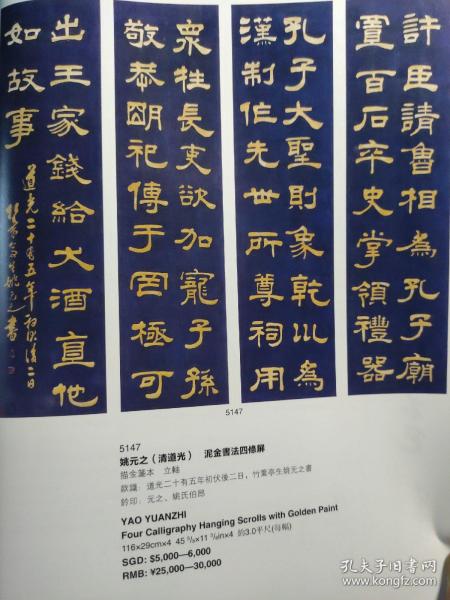 許臣請魯相為孔子廟
置百石卒史掌領禮器
孔子大聖則象乾巛為
漢制作先世所尊祠用
衆牲長吏欲加寵子孫
敬恭朙祀傳于罔極可
出王家錢給大酒直他
如故事
道光二十有五年初伏後二日
竹葉亭生姚元之書
5147
5147
姚元之（清道光） 泥金書法四條屏
描金箋本 立軸
款識：道光二十有五年初伏後二日，竹葉亭生姚元之書
鈐印：元之、姚氏伯昂
YAO YUANZHI
Four Calligraphy Hanging Scrolls with Golden Paint
116×29cm×4 45 5/8×11 3/8in×4 約3.0平尺(每幅)
SGD: $5,000—6,000
RMB: ¥25,000—30,000
孔夫子旧书网